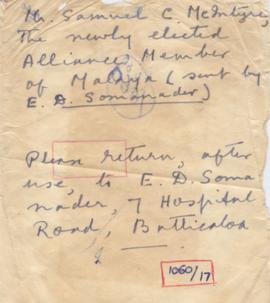 Mr. Samuel C McIntyre,
The newly elected
Alliance Member
of Malaya (sent by
E. D. Somanader)
Please return, after
use, to E. D. Soma
nader, 7 Hospital
Road, Batticaloa
1060/17